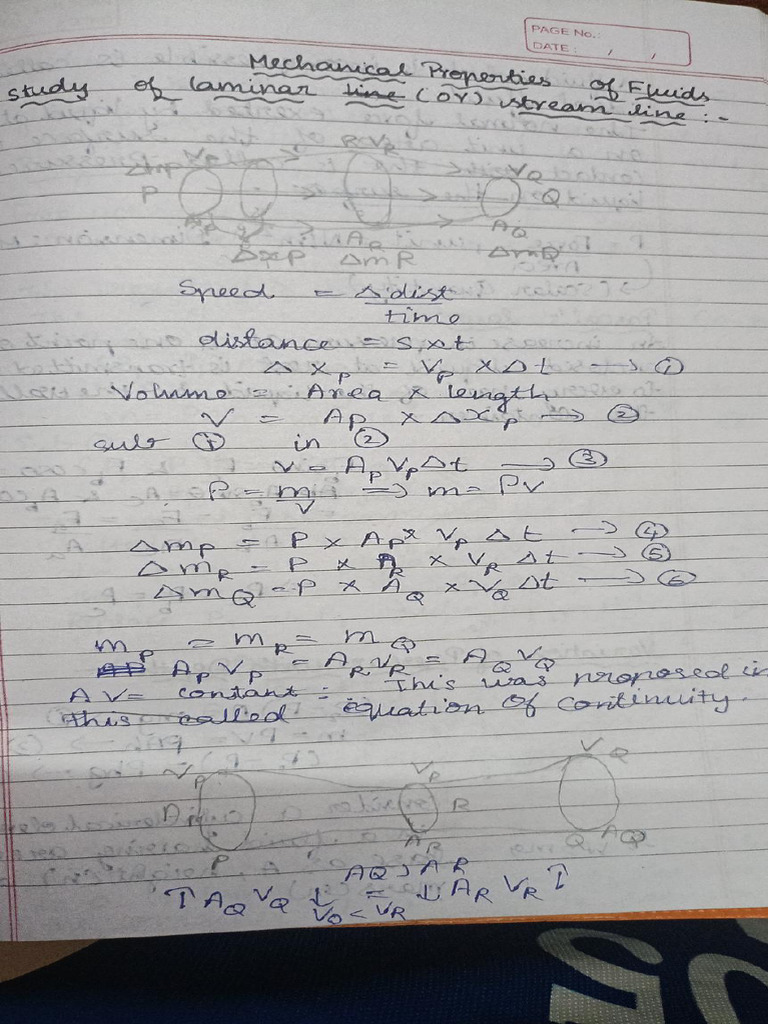 PAGE No.:
DATE : , ,
Mechanical Properties of Fluids
study of laminar line (or) stream line :-
R VR
ΔmP VP VQ
P Q
AP AR AQ
ΔxP ΔmR ΔmQ
Speed = Δ dist
time
distance = s x t
Δ xP = VP x Δt → ①
Volume = Area x length
V = AP x ΔxP → ②
sub ① in ②
V = AP VP Δt → ③
P = m ⇒ m = PV
V
ΔmP = P x AP x VP Δt → ④
ΔmR = P x AR x VR Δt → ⑤
ΔmQ = P x AQ x VQ Δt → ⑥
mP = mR = mQ
AP VP = AR VR = AQ VQ
AV = constant = This was proposed in
this called equation of continuity.
VP VR VQ
A R
P AR Q AQ
AQ > AR
↑ AQ VQ ↓ = ↓ AR VR ↑
VQ < VR
05